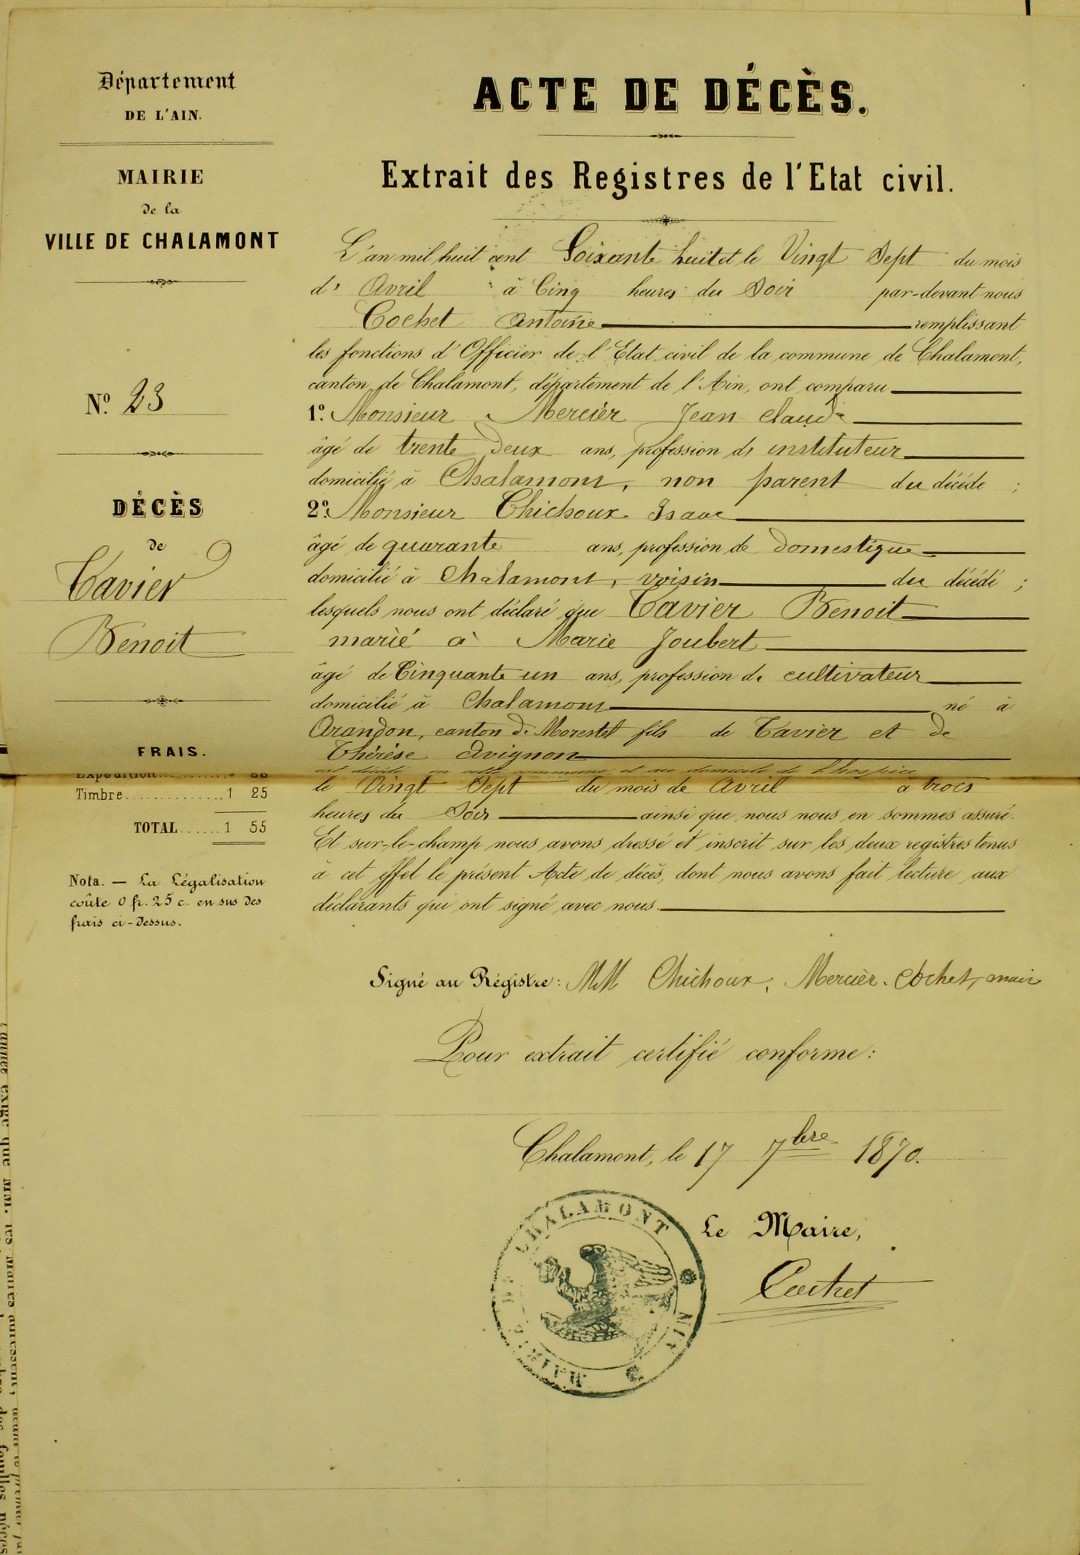 Département
DE L'AIN.
MAIRIE
de la
VILLE DE CHALAMONT
N.º 23
DÉCÈS
de
Tavier
Benoit
FRAIS.
Expédition
Timbre 1 25
TOTAL 1 55
Nota. — La Légalisation
coûte 0 fr. 25 c. en sus des
frais ci-dessus.
ACTE DE DÉCÈS.
Extrait des Registres de l'Etat civil.
L'an mil huit cent Soixante huit et le Vingt Sept du mois
d' Avril à Cinq heures du Soir par-devant nous
Cochet Antoine remplissant
les fonctions d'Officier de l'Etat civil de la commune de Chalamont,
canton de Chalamont, département de l'Ain, ont comparu
1º Monsieur Mercier Jean Claude
âgé de trente deux ans, profession de instituteur
domicilié à Chalamont, non parent du décédé ;
2º Monsieur Chichoux Isaac
âgé de quarante ans, profession de domestique
domicilié à Chalamont, voisin du décédé ;
lesquels nous ont déclaré que Tavier Benoit
marié à Marie Joubert
âgé de Cinquante un ans, profession de cultivateur
domicilié à Chalamont né à
Arandon, canton de Morestel fils de Tavier et de
Thérèse Avignon
est décédé en cette commune et au domicile de l'hospice
le Vingt Sept du mois de Avril à trois
heures du Soir ainsi que nous nous en sommes assuré.
Et sur-le-champ nous avons dressé et inscrit sur les deux registres tenus
à cet effet le présent Acte de décès, dont nous avons fait lecture aux
déclarants qui ont signé avec nous.
Signé au Régistre : MM Chichoux, Mercier. Cochet, maire
Pour extrait certifié conforme :
Chalamont, le 17 7bre 1870.
Le Maire,
Cochet
MAIRIE DE CHALAMONT * AIN *